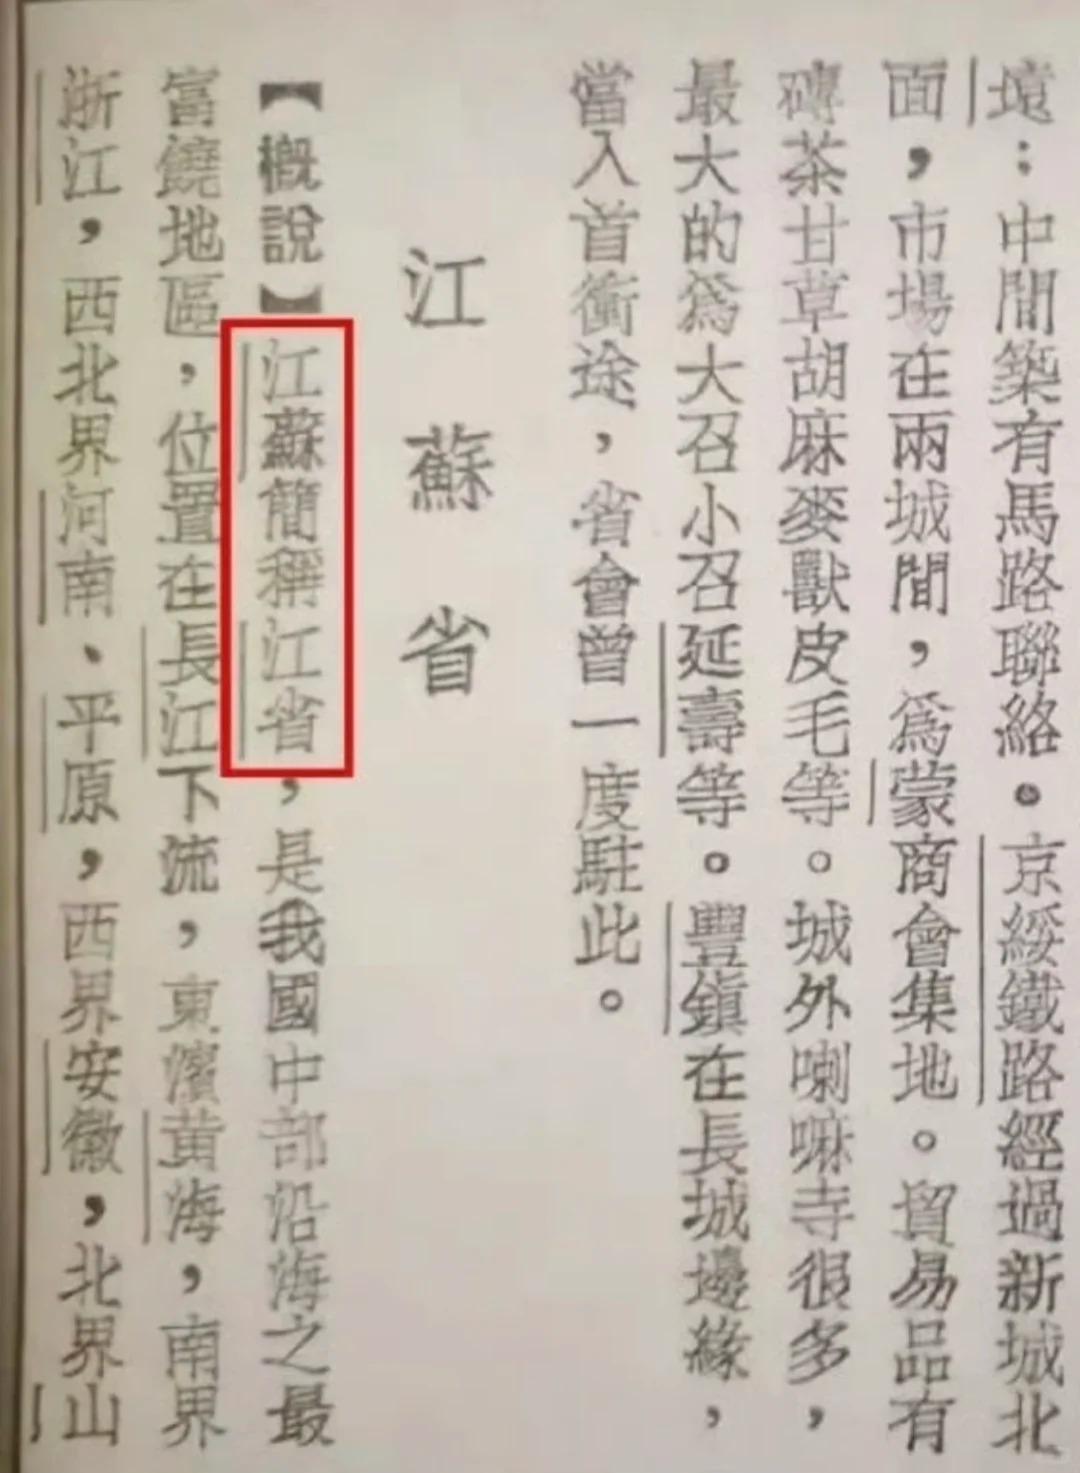 境：中間築有馬路聯絡。京綏鐵路經過新城北
面，市場在兩城間，爲蒙商會集地。貿易品有
磚茶甘草胡麻麥獸皮毛等。城外喇嘛寺很多，
最大的爲大召小召延壽等。豐鎮在長城邊緣，
當入首衝途，省會曾一度駐此。
江蘇省
【概說】江蘇簡稱江省，是我國中部沿海之最
富饒地區，位置在長江下流，東濱黃海，南界
浙江，西北界河南、平原，西界安徽，北界山